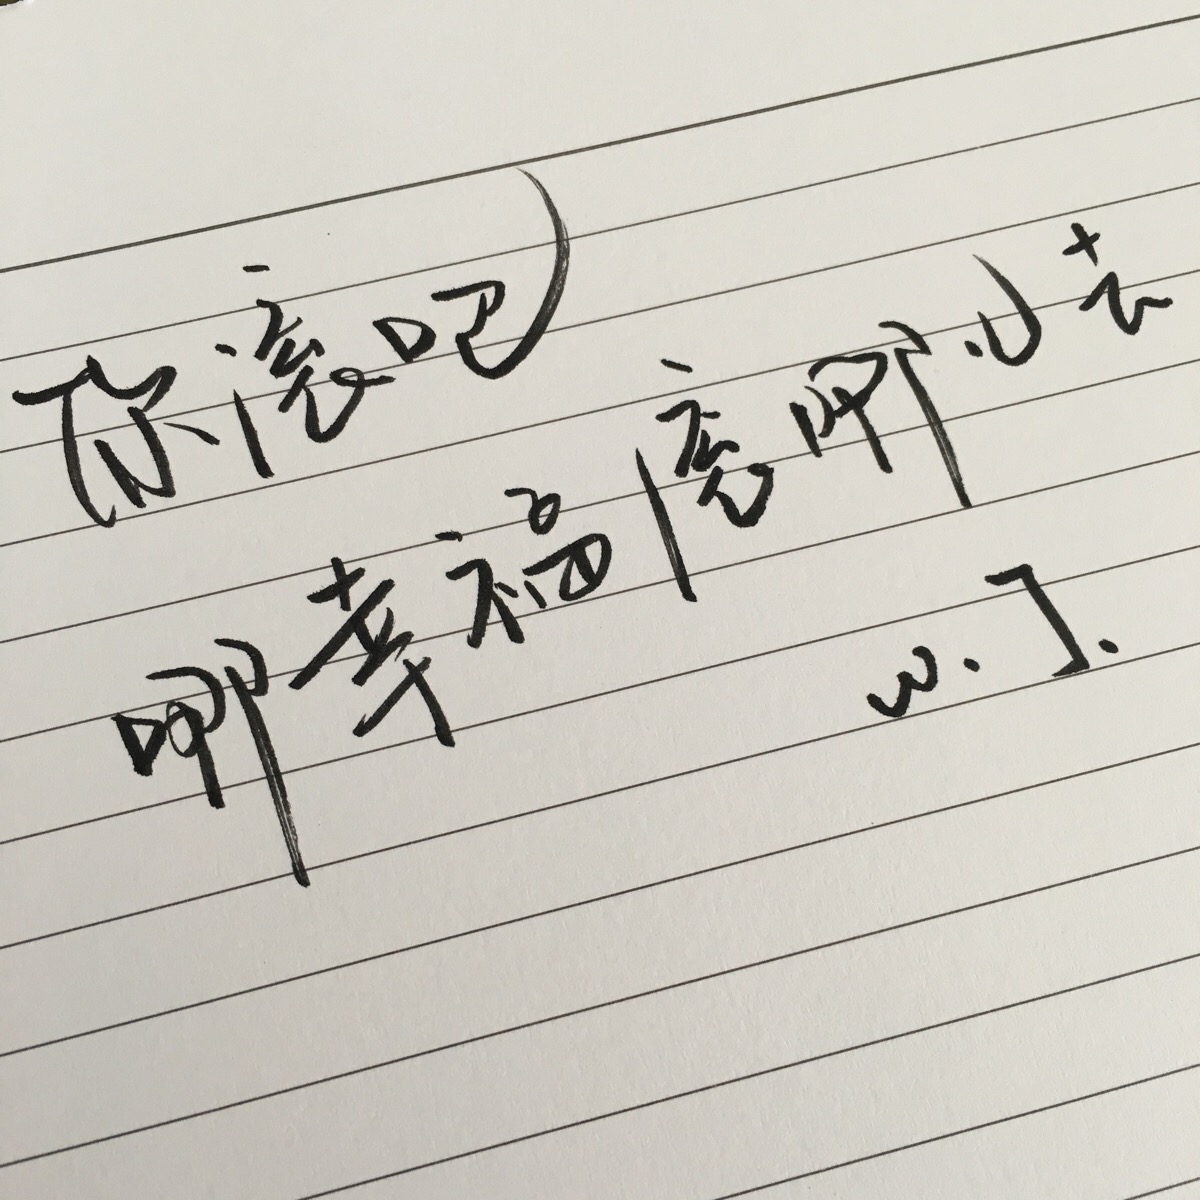 你滚吧
哪幸福滚哪儿去
W.J.